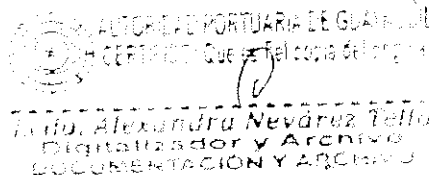 AUTORIDAD PORTUARIA DE GUAYAQUIL
CERTIFICO: Que es fiel copia del original
Alexandra Nevárez Tello
Digitalizador y Archivo
DOCUMENTACION Y ARCHIVO